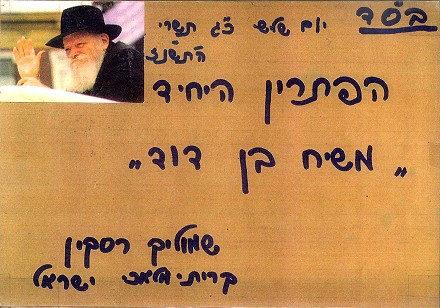 ב"סד
יום שלישי כ"ג תשרי
ה'תשנ"ג
הפתרון היחיד
"משיח בן דוד"
שמוליק רסקין
קרית-מלאכי ישראל